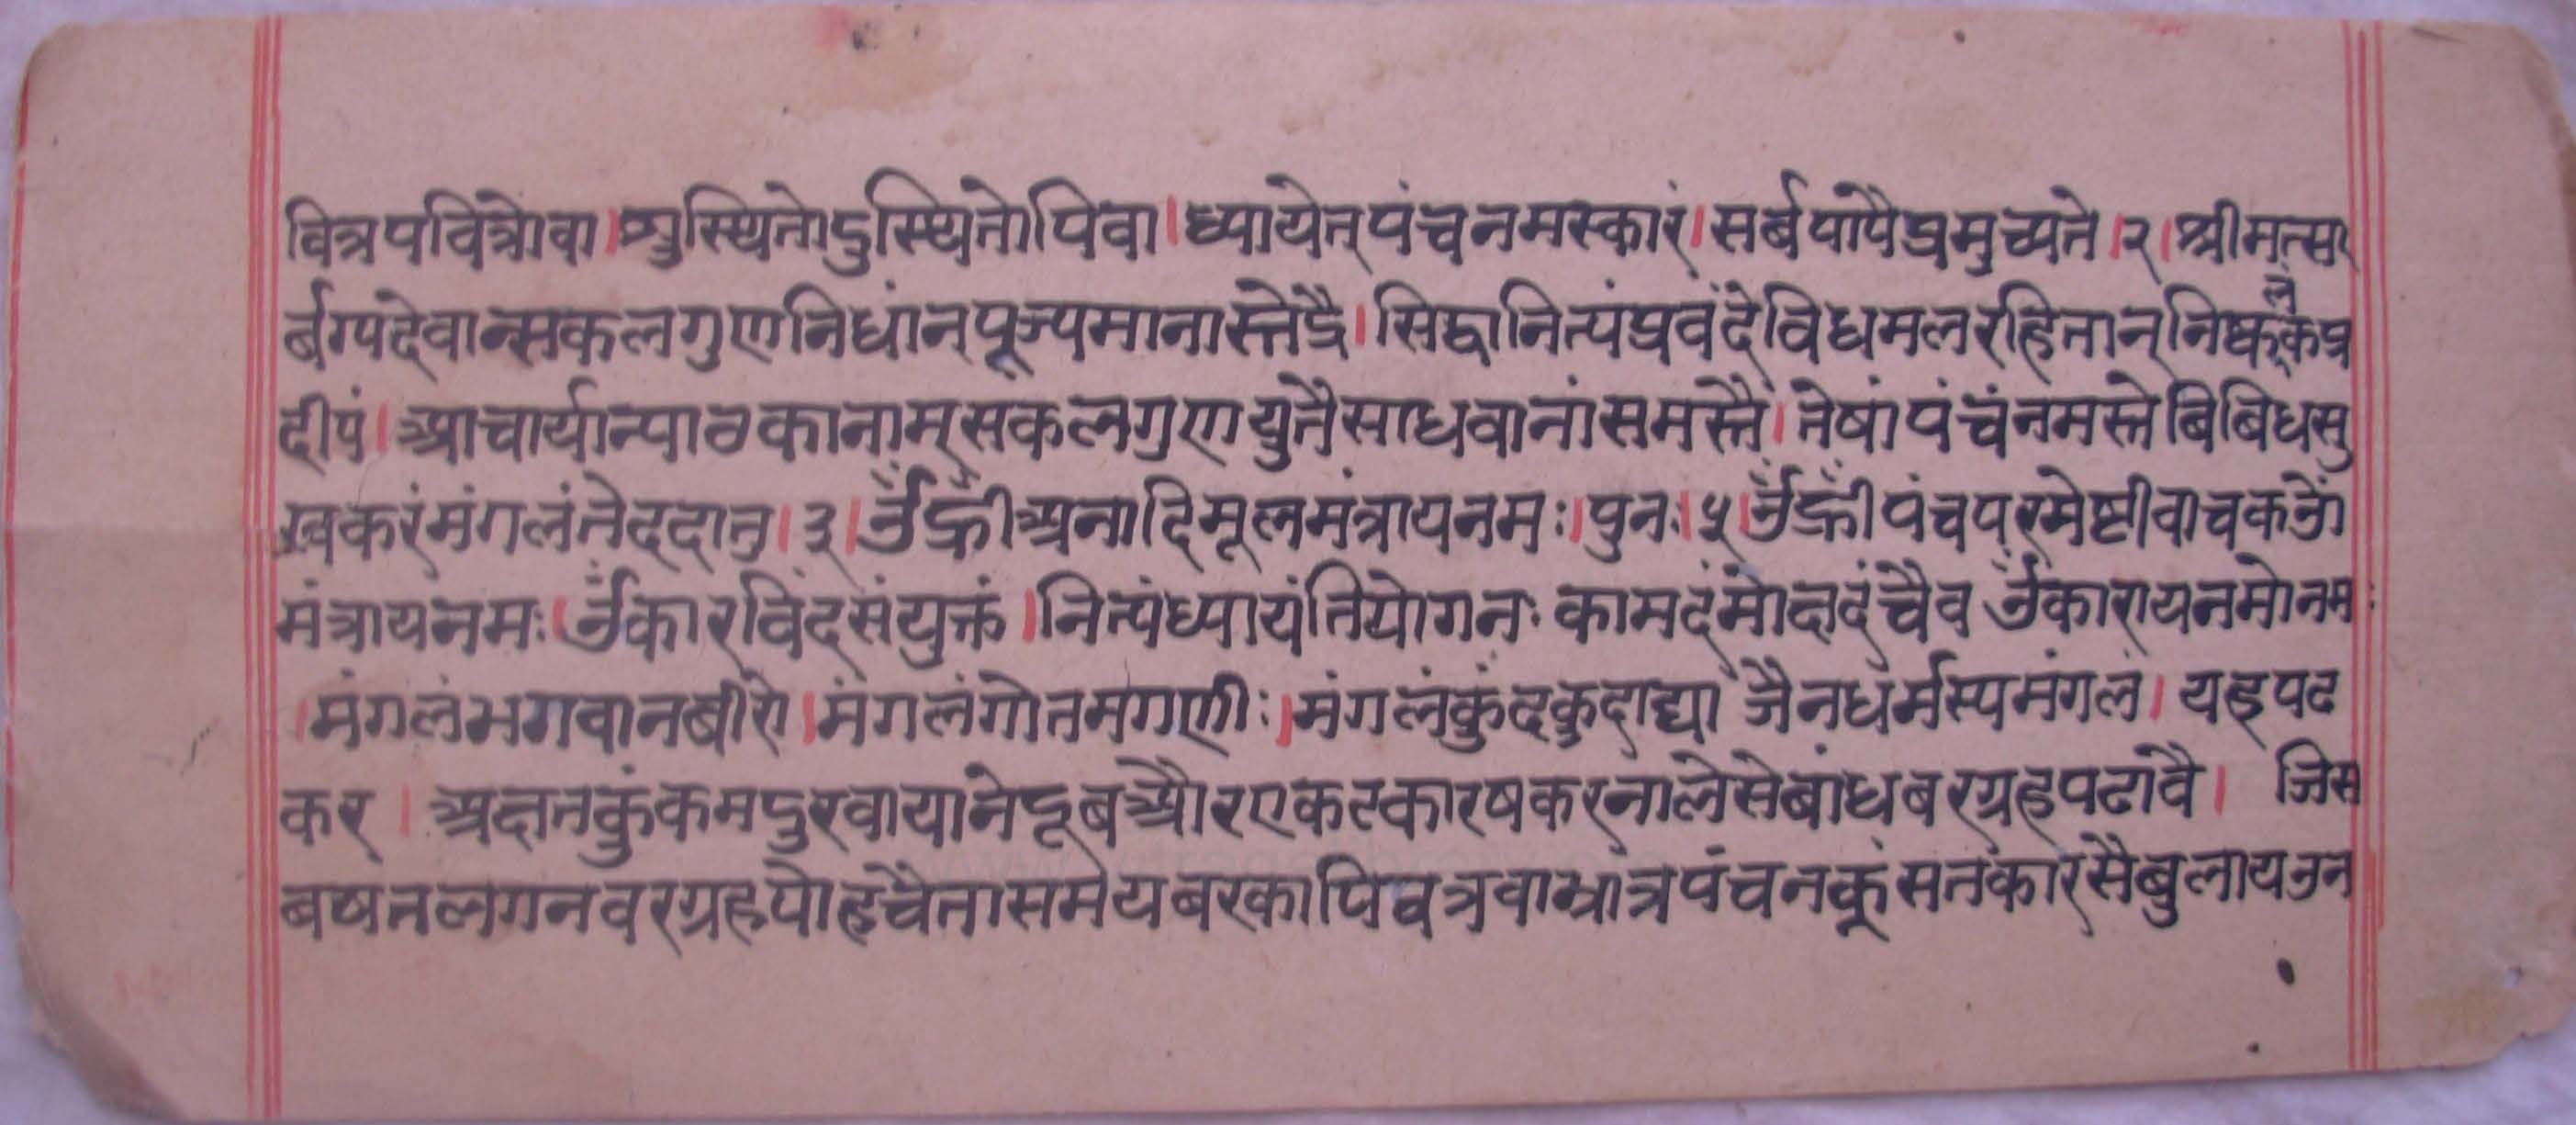 वित्रपवित्रोवा।शुस्थितोदुस्थितोपिवा।ध्यायेत्पंचनमस्कारं।सर्बपापैप्रमुच्यते।२।श्रीमत्सर
र्बग्यदेवान्सकलगुणनिधांनपूज्यमानास्तेद्रै।सिद्धानित्यंप्रवंदेविधमलरहितान्निष्कलंकप्र
दीपं।आचार्यान्पाठकानाम्सकलगुणयुतैसाधवानांसमस्तै।तेषांपंचंनमस्तेबिबिधसु
खकरंमंगलंतेददातु।३।ॐह्रीँअनादिमूलमंत्रायनमः।पुनः।५।ॐह्रीँपंचपरमेष्टीवाचकॐ
मंत्रायनमः।ॐकारविंदसंयुक्तं।नित्यंध्यायंतियोगनः कामदंमोक्षदंचैवॐकारायनमोनमः
।मंगलंभगवानबीरो।मंगलंगोतमगणीः।मंगलंकुंदकुदाद्या जैनधर्मस्यमंगलं। यहपढ
कर । अक्षतकुंकमपुरवायानेदूबऔरएकटकारषकरनालेसेबांधबरग्रहपठावै। जिस
बषतलगनवरग्रहपोहचैतासमेयबरकापि त्रवाभ्रात्रपंचनकूंसतकारसैबुलायउन